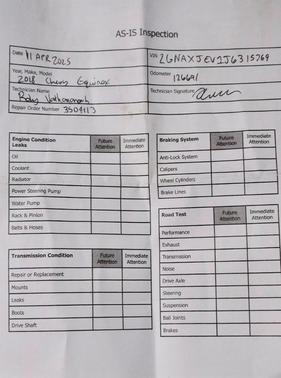 AS-IS Inspection
Date 11 APR 2025
VIN 2GNAXJEV1J6315769
Year, Make, Model
2018 Chevy Equinox
Odometer 126691
Technician Name
Technician Signature
Repair Order Number 3504113
Engine Condition
Leaks
Future Attention
Immediate Attention
Oil
Coolant
Radiator
Power Steering Pump
Water Pump
Rack & Pinion
Belts & Hoses
Braking System
Future Attention
Immediate Attention
Anti-Lock System
Calipers
Wheel Cylinders
Brake Lines
Transmission Condition
Future Attention
Immediate Attention
Repair or Replacement
Mounts
Leaks
Boots
Drive Shaft
Road Test
Future Attention
Immediate Attention
Performance
Exhaust
Transmission
Noise
Drive Axle
Steering
Suspension
Ball Joints
Brakes